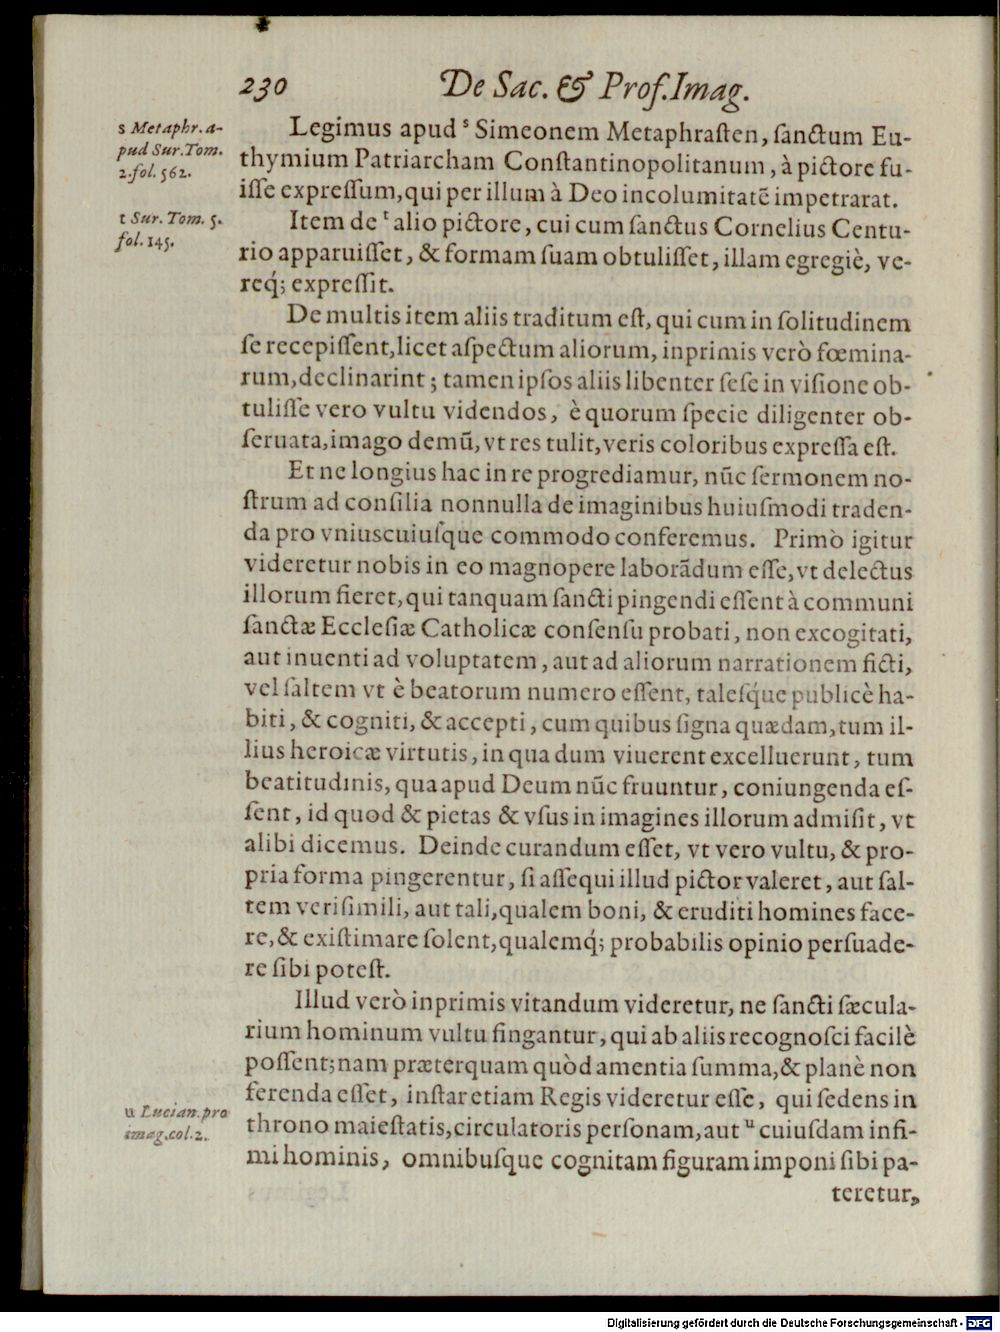 230 De Sac. & Prof. Imag.
s Metaphr. a-
pud Sur. Tom.
2. fol. 562.
Legimus apud ˢ Simeonem Metaphraſten, ſanctum Eu-
thymium Patriarcham Conſtantinopolitanum, à pictore fu-
iſſe expreſſum, qui per illum à Deo incolumitatē impetrarat.
t Sur. Tom. 5.
fol. 145.
Item de ᵗ alio pictore, cui cum ſanctus Cornelius Centu-
rio apparuiſſet, & formam ſuam obtuliſſet, illam egregiè, ve-
req́; expreſſit.
De multis item aliis traditum eſt, qui cum in ſolitudinem
ſe recepiſſent, licet aſpectum aliorum, inprimis verò fœmina-
rum, declinarint; tamen ipſos aliis libenter ſeſe in viſione ob-
tuliſſe vero vultu videndos, è quorum ſpecie diligenter ob-
ſeruata, imago demū, vt res tulit, veris coloribus expreſſa eſt.
Et ne longius hac in re progrediamur, nūc ſermonem no-
ſtrum ad conſilia nonnulla de imaginibus huiuſmodi traden-
da pro vniuscuiuſque commodo conferemus. Primò igitur
videretur nobis in eo magnopere laborādum eſſe, vt delectus
illorum fieret, qui tanquam ſancti pingendi eſſent à communi
ſanctæ Eccleſiæ Catholicæ conſenſu probati, non excogitati,
aut inuenti ad voluptatem, aut ad aliorum narrationem ficti,
vel ſaltem vt è beatorum numero eſſent, taleſq́ue publicè ha-
biti, & cogniti, & accepti, cum quibus ſigna quædam, tum il-
lius heroicæ virtutis, in qua dum viuerent excelluerunt, tum
beatitudinis, qua apud Deum nūc fruuntur, coniungenda eſ-
ſent, id quod & pietas & vſus in imagines illorum admiſit, vt
alibi dicemus. Deinde curandum eſſet, vt vero vultu, & pro-
pria forma pingerentur, ſi aſſequi illud pictor valeret, aut ſal-
tem veriſimili, aut tali, qualem boni, & eruditi homines face-
re, & exiſtimare ſolent, qualemq́; probabilis opinio perſuade-
re ſibi poteſt.
Illud verò inprimis vitandum videretur, ne ſancti ſæcula-
rium hominum vultu fingantur, qui ab aliis recognoſci facilè
poſſent; nam præterquam quòd amentia ſumma, & planè non
ferenda eſſet, inſtar etiam Regis videretur eſſe, qui ſedens in
u Lucian. pro
imag. col. 2.
throno maieſtatis, circulatoris perſonam, aut ᵘ cuiuſdam infi-
mi hominis, omnibuſque cognitam figuram imponi ſibi pa-
teretur,
Digitalisierung gefördert durch die Deutsche Forschungsgemeinschaft - DFG